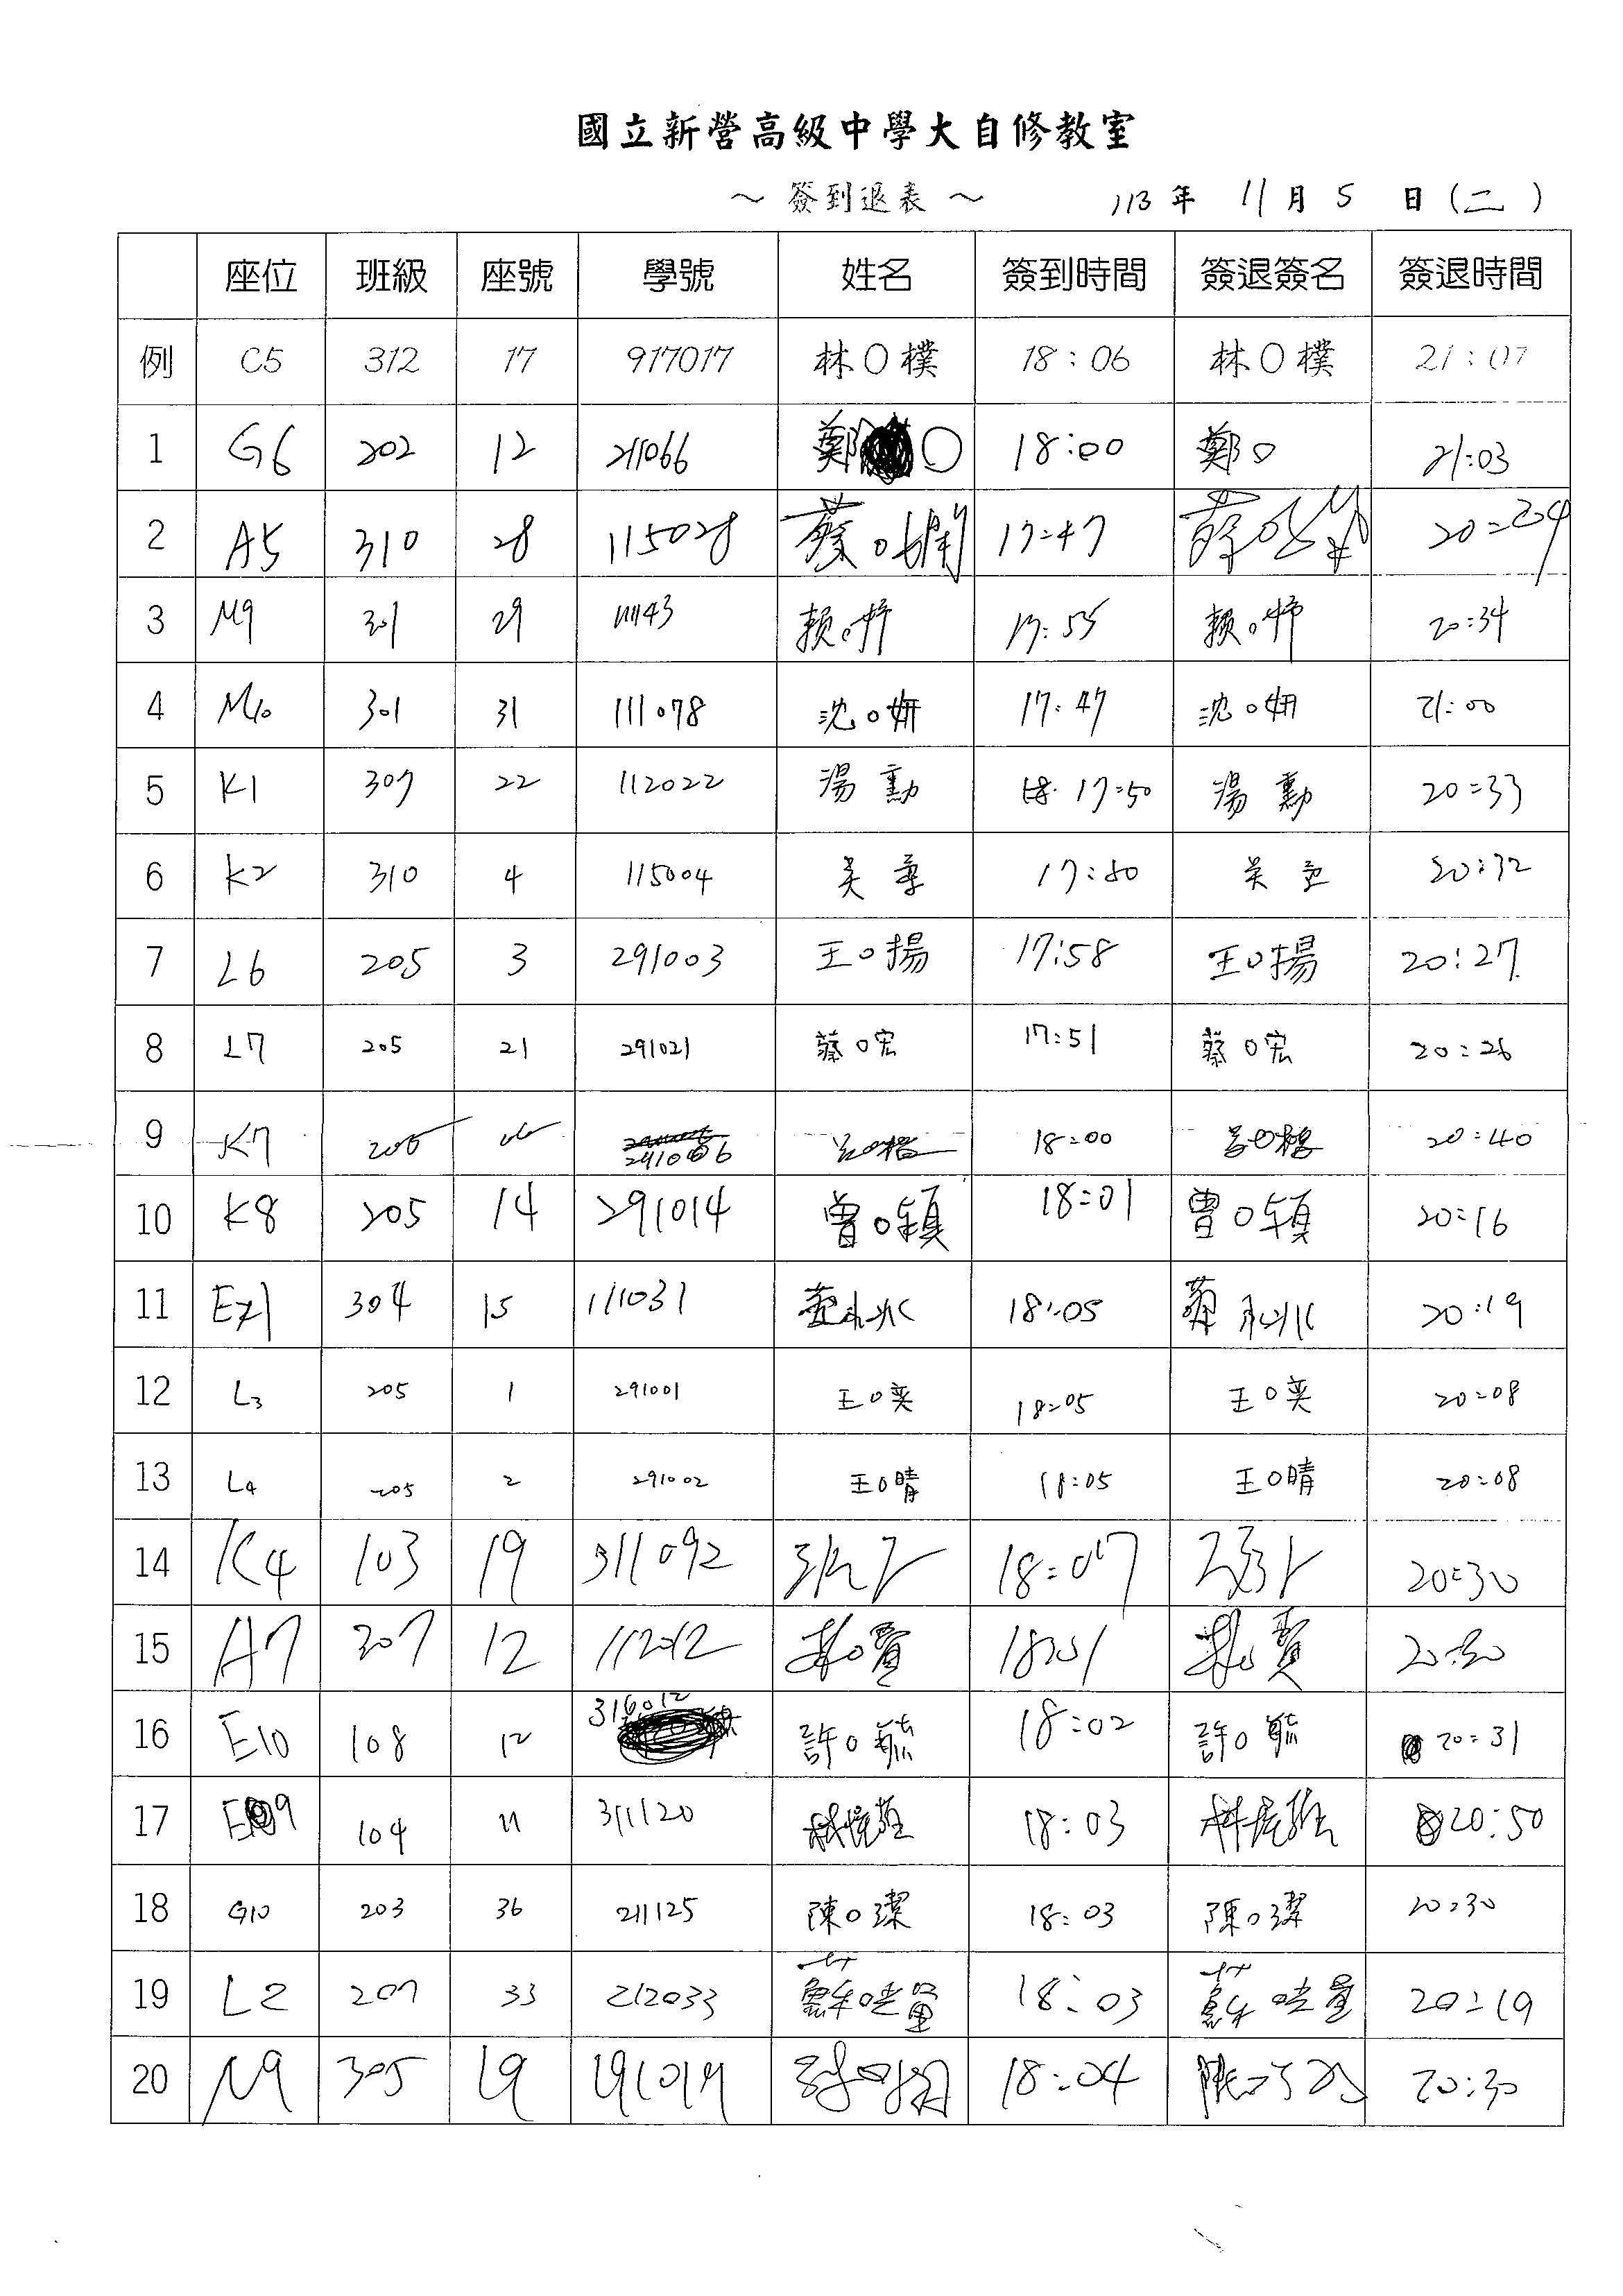 國立新營高級中學大自修教室
～ 簽到退表 ～ 113 年 11 月 5 日 (二)
座位 班級 座號 學號 姓名 簽到時間 簽退簽名 簽退時間
例 C5 312 17 917017 林〇樸 18:06 林〇樸 21:07
1 G6 202 12 211066 鄭〇 18:00 鄭〇 21:03
2 A5 310 28 115028 蔡〇 17:47 20:24
3 M9 301 29 賴〇 17:55 賴〇 20:34
4 M10 301 31 111078 沈〇妍 17:47 沈〇妍 21:00
5 K1 307 22 112022 湯 勳 17:50 湯 勳 20:33
6 K2 310 4 115004 吳 17:50 吳 20:32
7 L6 205 3 291003 王〇揚 17:58 王〇揚 20:27
8 L7 205 21 291021 蔡〇宏 17:51 蔡〇宏 20:26
9 K7 205 18:00 20:40
10 K8 205 14 291014 曾〇穎 18:01 曾〇穎 20:16
11 304 15 111031 18:05 20:19
12 L3 205 1 291001 王〇奕 18:05 王〇奕 20:08
13 L4 205 2 291002 王〇晴 18:05 王〇晴 20:08
14 K4 103 19 311092 18:07 20:30
15 A7 307 12 112012 18:01 20:30
16 E10 108 12 316012 許〇毓 18:02 許〇毓 20:31
17 E9 104 11 311120 18:03 20:50
18 G10 203 36 211125 陳〇潔 18:03 陳〇潔 20:30
19 L2 207 33 212033 18:03 20:19
20 M9 305 19 191019 18:04 20:30